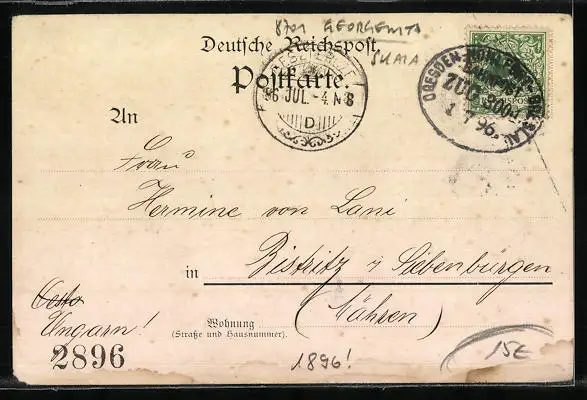 8701 GEORGEWITZ
SKALA
Deutsche Reichspost
Postkarte.
96 JUL.-4.N8
D
DRESDEN
ZUG
1 7 96
An
Frau
Hermine von Lani
in Bistritz i/ Siebenbürgen
(Mähren)
Ungarn!
Wohnung
(Straße und Hausnummer).
2896
1896!
15€